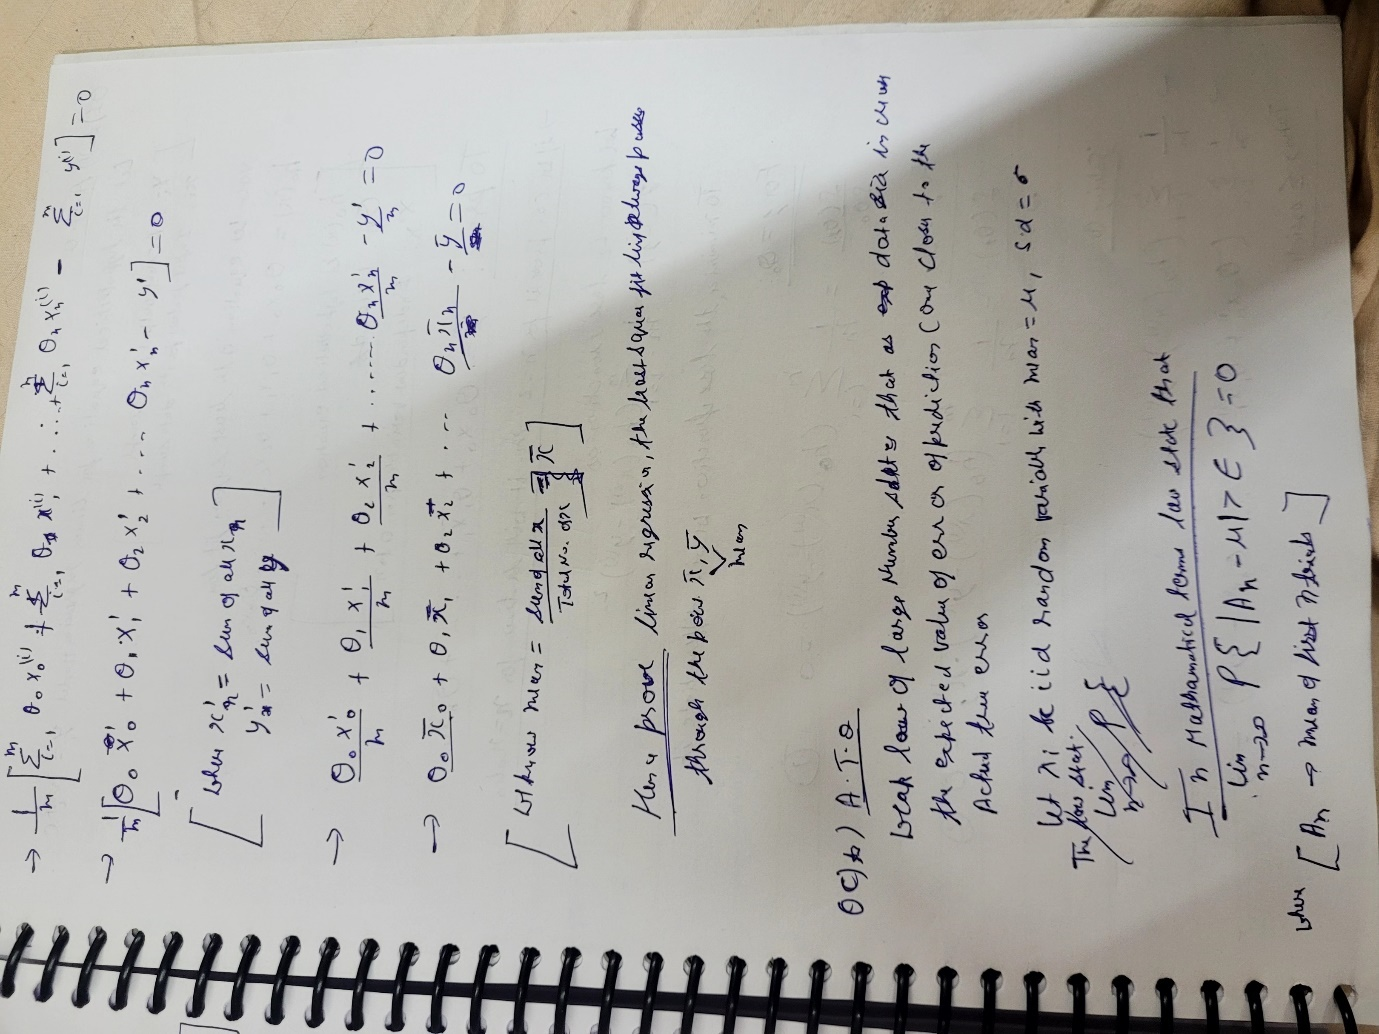 → 1/m [ Σᵐᵢ₌₁ θ₀x₀⁽ⁱ⁾ + Σᵐᵢ₌₁ θ₁x⁽ⁱ⁾₁ + ....+ Σᵐᵢ₌₁ θₙxₙ⁽ⁱ⁾ - Σᵐᵢ₌₁ y⁽ⁱ⁾ ] = 0
→ 1/m [ θ₀ x'₀ + θ₁ x'₁ + θ₂ x'₂ + .... θₙ x'ₙ - y' ] = 0
[ where x'ₙ = sum of all xₙ
y' = sum of all y ]
→ θ₀ x'₀/m + θ₁ x'₁/m + θ₂ x'₂/m + ...... θₙ x'ₙ/m - y'/m = 0
→ θ₀ x̄₀ + θ₁ x̄₁ + θ₂ x̄₂ + ... θₙ x̄ₙ - ȳ = 0
[ We know mean = sum of all x / Total no. of x = x̄ ]
Hence prove linear regression, the least square fit line always passes
through the point x̄, ȳ
mean
Q C) b) A.T.Q
Weak law of large Number states that as data size increases
the expected value of error of prediction come closer to the
Actual true error
Let xᵢ be iid random variable with mean = μ, s.d = σ
The law stat.
Lim P{
n→∞
In Mathamatical terms law state that
Lim n→∞ P{ |Aₙ - μ| > ∈ } = 0
where [ Aₙ → mean of first n trials ]